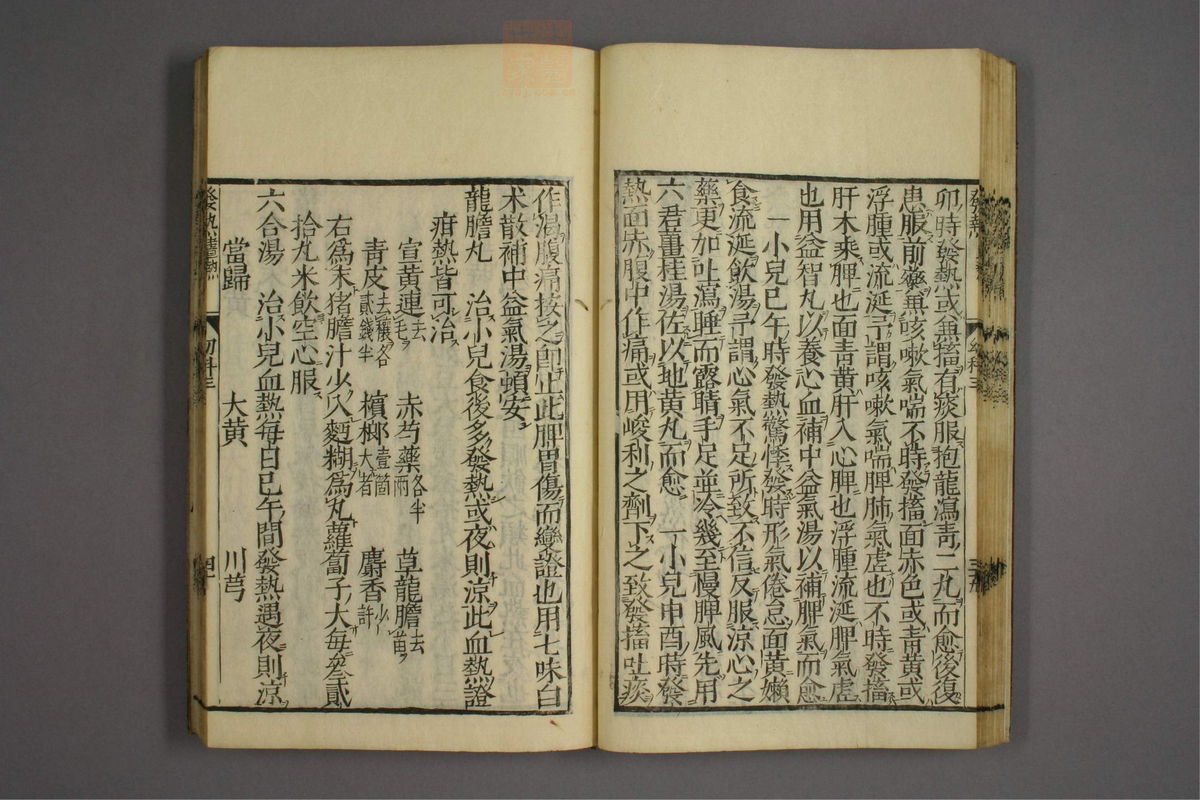 卯時發熱或兼搐有痰服抱龍瀉青二丸而愈後復
患服前藥無咳嗽氣喘不時發搐面赤色或青黃或
浮腫或流涎予謂咳嗽氣喘脾肺氣虛也不時發搐
肝木乘脾也面青黃肝入心脾也浮腫流涎脾氣虛
也用益智丸以養心血補中益氣湯以補脾氣而愈
一小兒巳午時發熱驚悸發時形氣倦怠面黃懶
食流涎飲湯予謂心氣不足所致不信反服凉心之
藥更加吐瀉睡而露睛手足並冷幾至慢脾風先用
六君薑桂湯佐以地黃丸而愈 一小兒申酉時發
熱面赤腹中作痛或用峻利之劑下之致發搐吐痰
作渴腹痛按之即止此脾胃傷而變證也用七味白
术散補中益氣湯頓安
龍膽丸 治小兒食後多發熱或夜則凉此血熱證
疳熱皆可治
宣黃連去毛 赤芍藥各半兩 草龍膽去苗
青皮去穰各貳錢半 檳榔大者壹箇 麝香少許
右為末猪膽汁少入麪糊為丸蘿蔔子大每叄貳
拾丸米飲空心服
六合湯 治小兒血熱每日巳午間發熱遇夜則凉
當歸 大黃 川芎
幼科三
四一